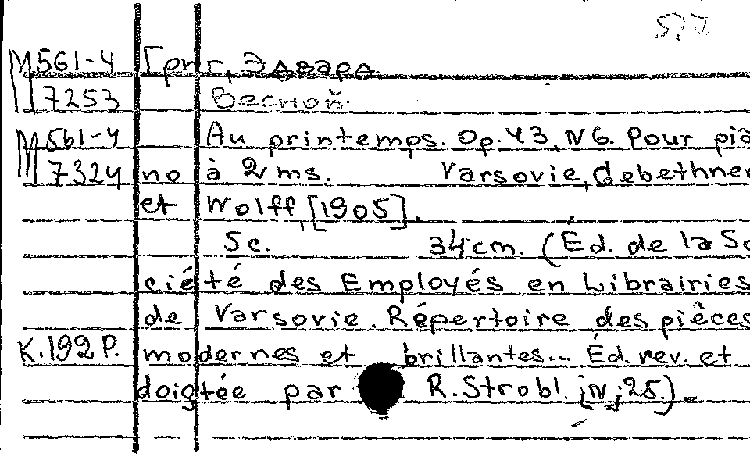 М561-4 Григ, Эдвард
7253 Весной.
М561-4 Au printemps. Op.43, N6. Pour pia
7324 no à 2 ms. Varsovie, Gebethner
et Wolff, [1905].
5c. 34cm. (Éd. de la So
ciété des Employés en Librairies
de Varsovie. Répertoire des pièces
К.192 Р. modernes et brillantes... Éd. rev. et
doigtée par R. Strobl. N, 25).